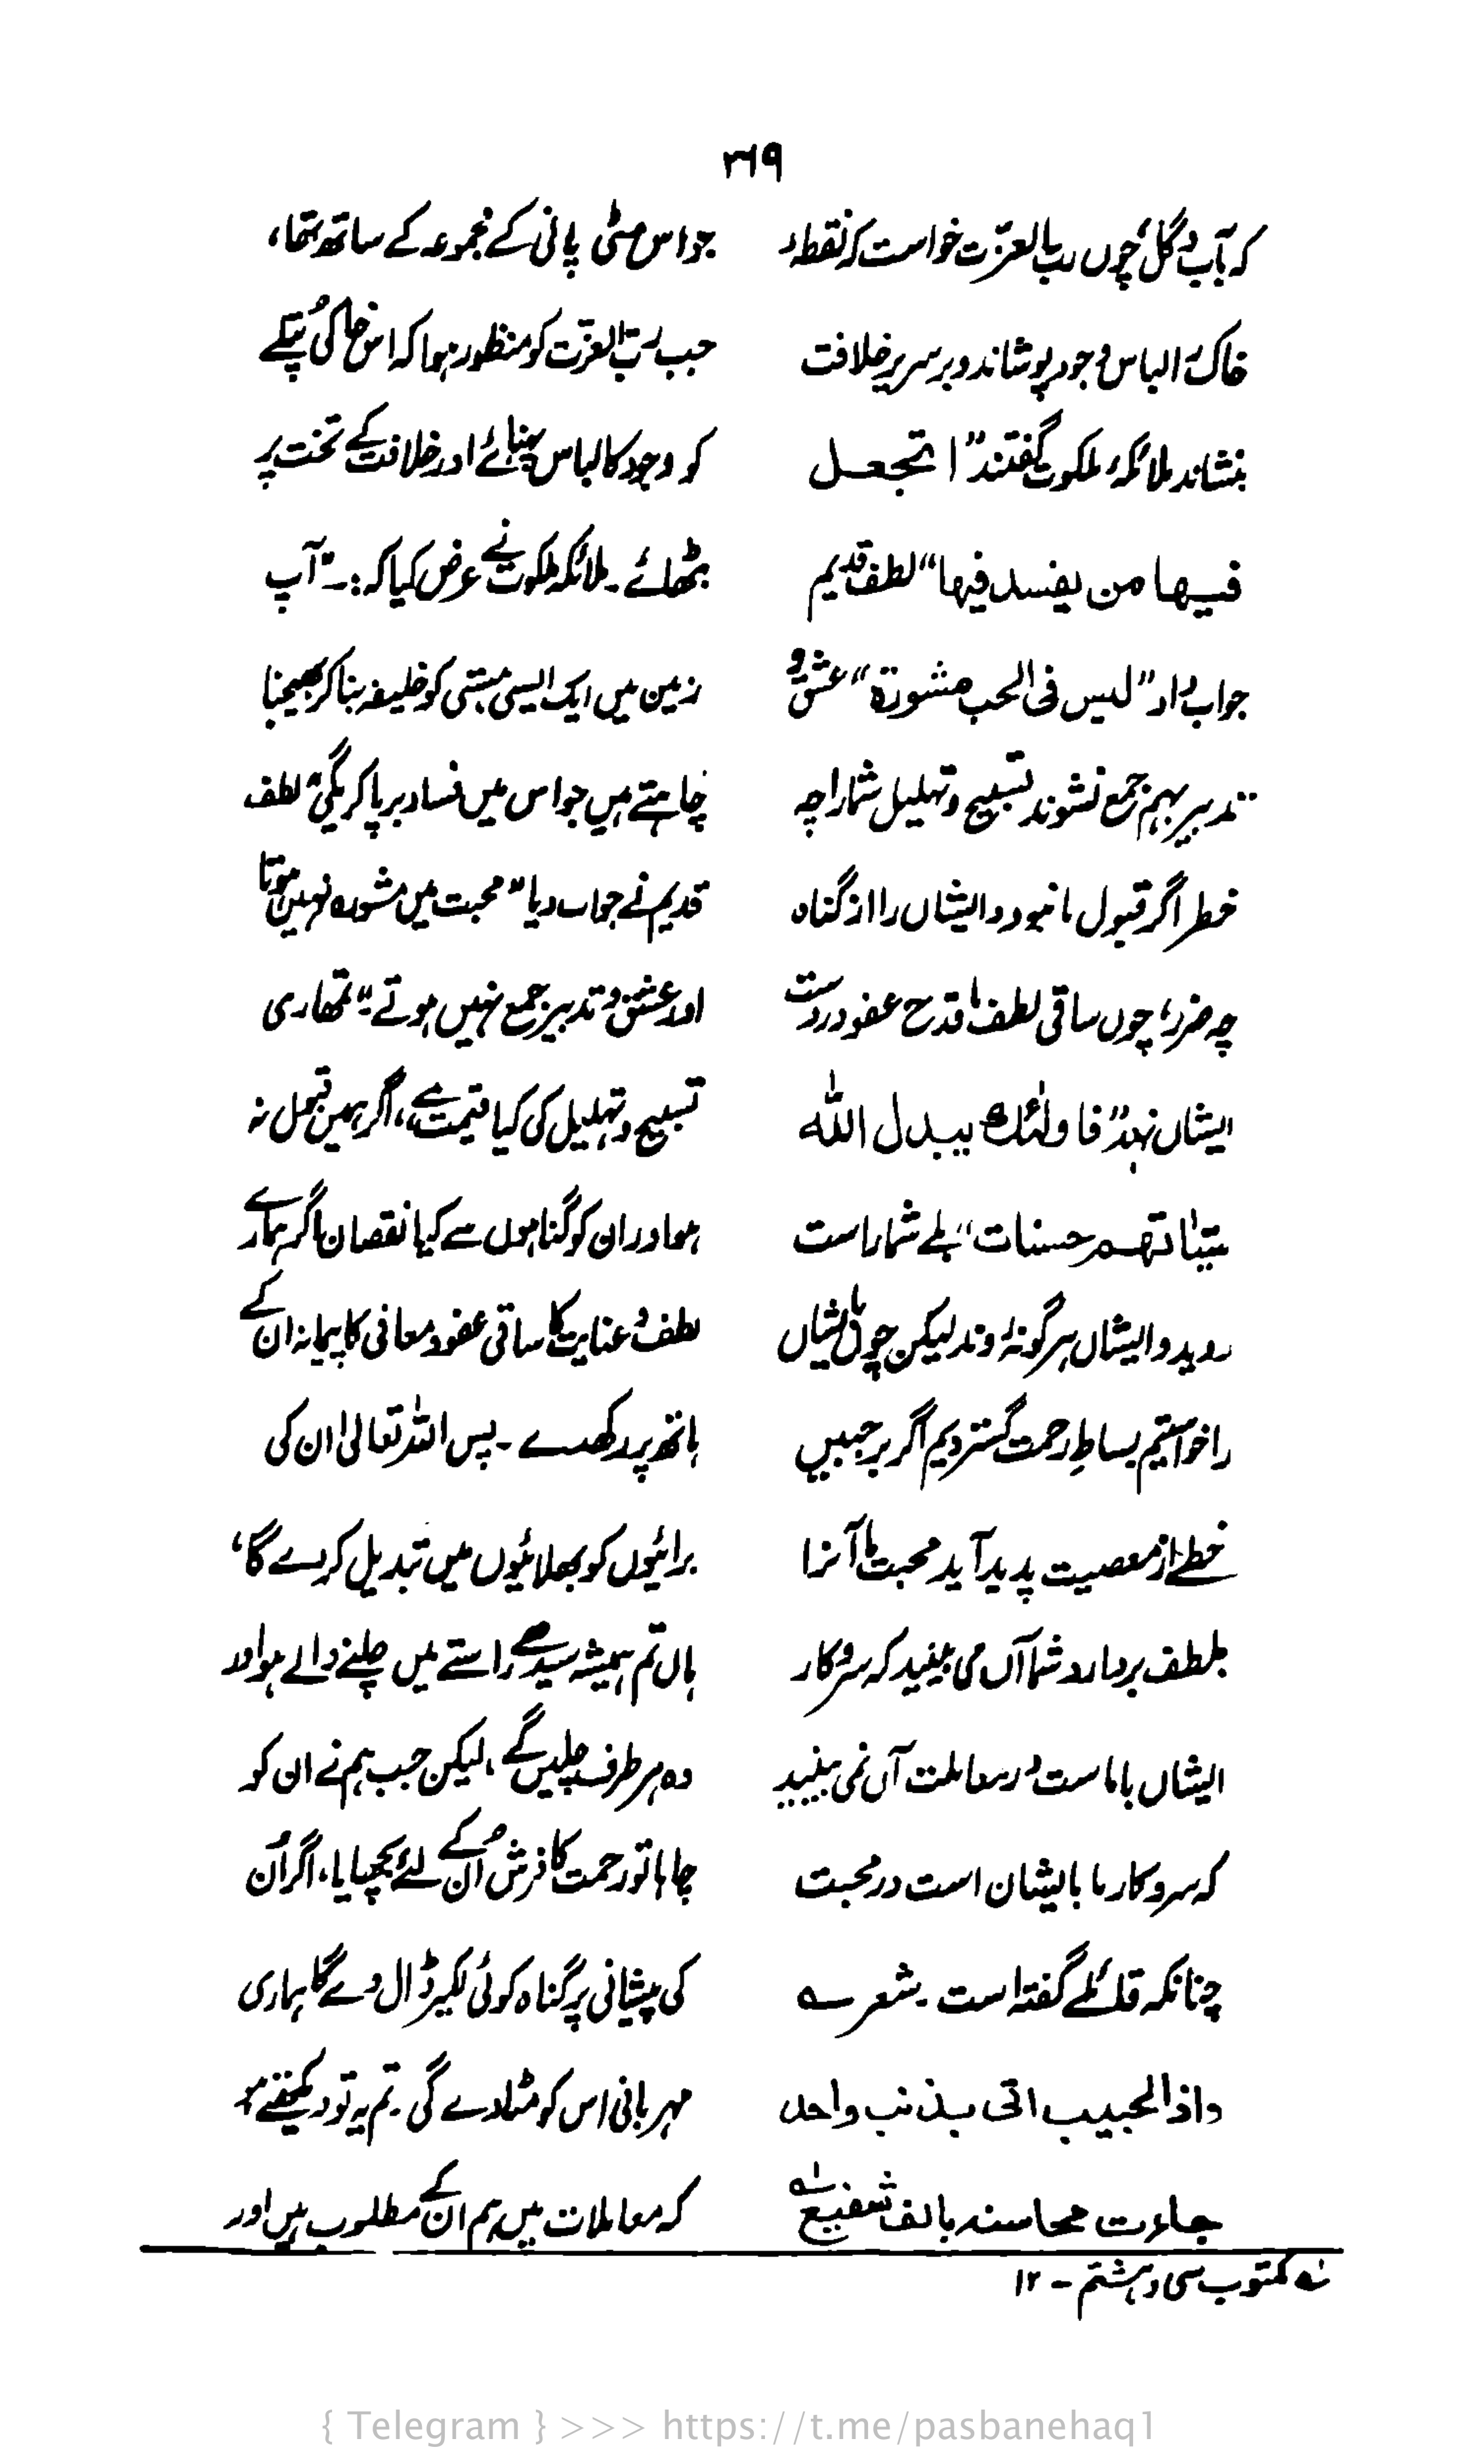 ۲۶۹
کہ آب و گل، چوں رب العزّت خواست کہ نقطۂ
خاک را لباس وجود پوشاند و بر سریر خلافت
بنشاند ملائکہ ملکوت گفتند "اتجعل
فیہا من یفسد فیہا" لطف قدیم
جواب داد "لیس فی الحب مشورۃ" عشق و
تدبیر بہم جمع نشوند تسبیح و تہلیل شمارا چہ
خطر اگر قبول ما نبود و ایشاں را از گناہ
چہ ضرر، چوں ساقی لطف ما قدح عفو در دست
ایشاں نہد "فاولٰئک یبدل اللہ
سیّاٰتہم حسنات" بلے شما راست
روید و ایشاں ہر گونہ روند لیکن چوں ما ایشاں
را خواستیم بساطِ رحمت گستردیم اگر بر جبیں
خطے از معصیت پدید آید محبت ما آنرا
بلطف بردارد شما آں می بینید کہ سروکار
ایشاں باماست در معاملت آں نمی بینید
کہ سروکار ما بایشان است در محبت
چنانکہ قائلے گفتہ است ۔ شعر ؎
واذا الحبیب اتی بذنب واحد
جاءت محاسنہ بالف شفیع لہ
جو اس مٹی پانی کے مجموعہ کے ساتھ تھا،
جب رب العزّت کو منظور ہوا کہ اس خاکی پُتلے
کو وجود کا لباس پہنائے اور خلافت کے تخت پر
بٹھائے ۔ ملائکہ ملکوت نے عرض کیا کہ :۔ "آپ
زمین میں ایک ایسی ہستی کو خلیفہ بنا کر بھیجنا
چاہتے ہیں جو اس میں فساد برپا کریگی" لطف
قدیم نے جواب دیا "محبت میں مشورہ نہیں ہوتا
اور عشق و تدبیر جمع نہیں ہوتے" تمھاری
تسبیح و تہلیل کی کیا قیمت ہے، اگر ہمیں قبول نہ
ہو اور ان کو گناہوں سے کیا نقصان اگر ہمارے
لطف و عنایت کا ساقی عفو و معافی کا پیمانہ ان کے
ہاتھ پر رکھدے ۔ پس اللہ تعالیٰ ان کی
برائیوں کو بھلائیوں میں تبدیل کر دے گا،
ہاں تم ہمیشہ سیدھے راستے میں چلنے والے ہو اور
وہ ہر طرف چلیں گے ، لیکن جب ہم نے ان کو
چاہا تو رحمت کا فرش اُن کے لئے بچھایا، اگر اُن
کی پیشانی پر گناہ کوئی لکیر ڈال دے گا ہماری
مہربانی اس کو مٹا دے گی ۔ تم یہ تو دیکھتے ہو
کہ معاملات میں ہم ان کے مطلوب ہیں اور
لہ مکتوب سی و ہشتم - ۱۲
{ Telegram } >>> https://t.me/pasbanehaq1